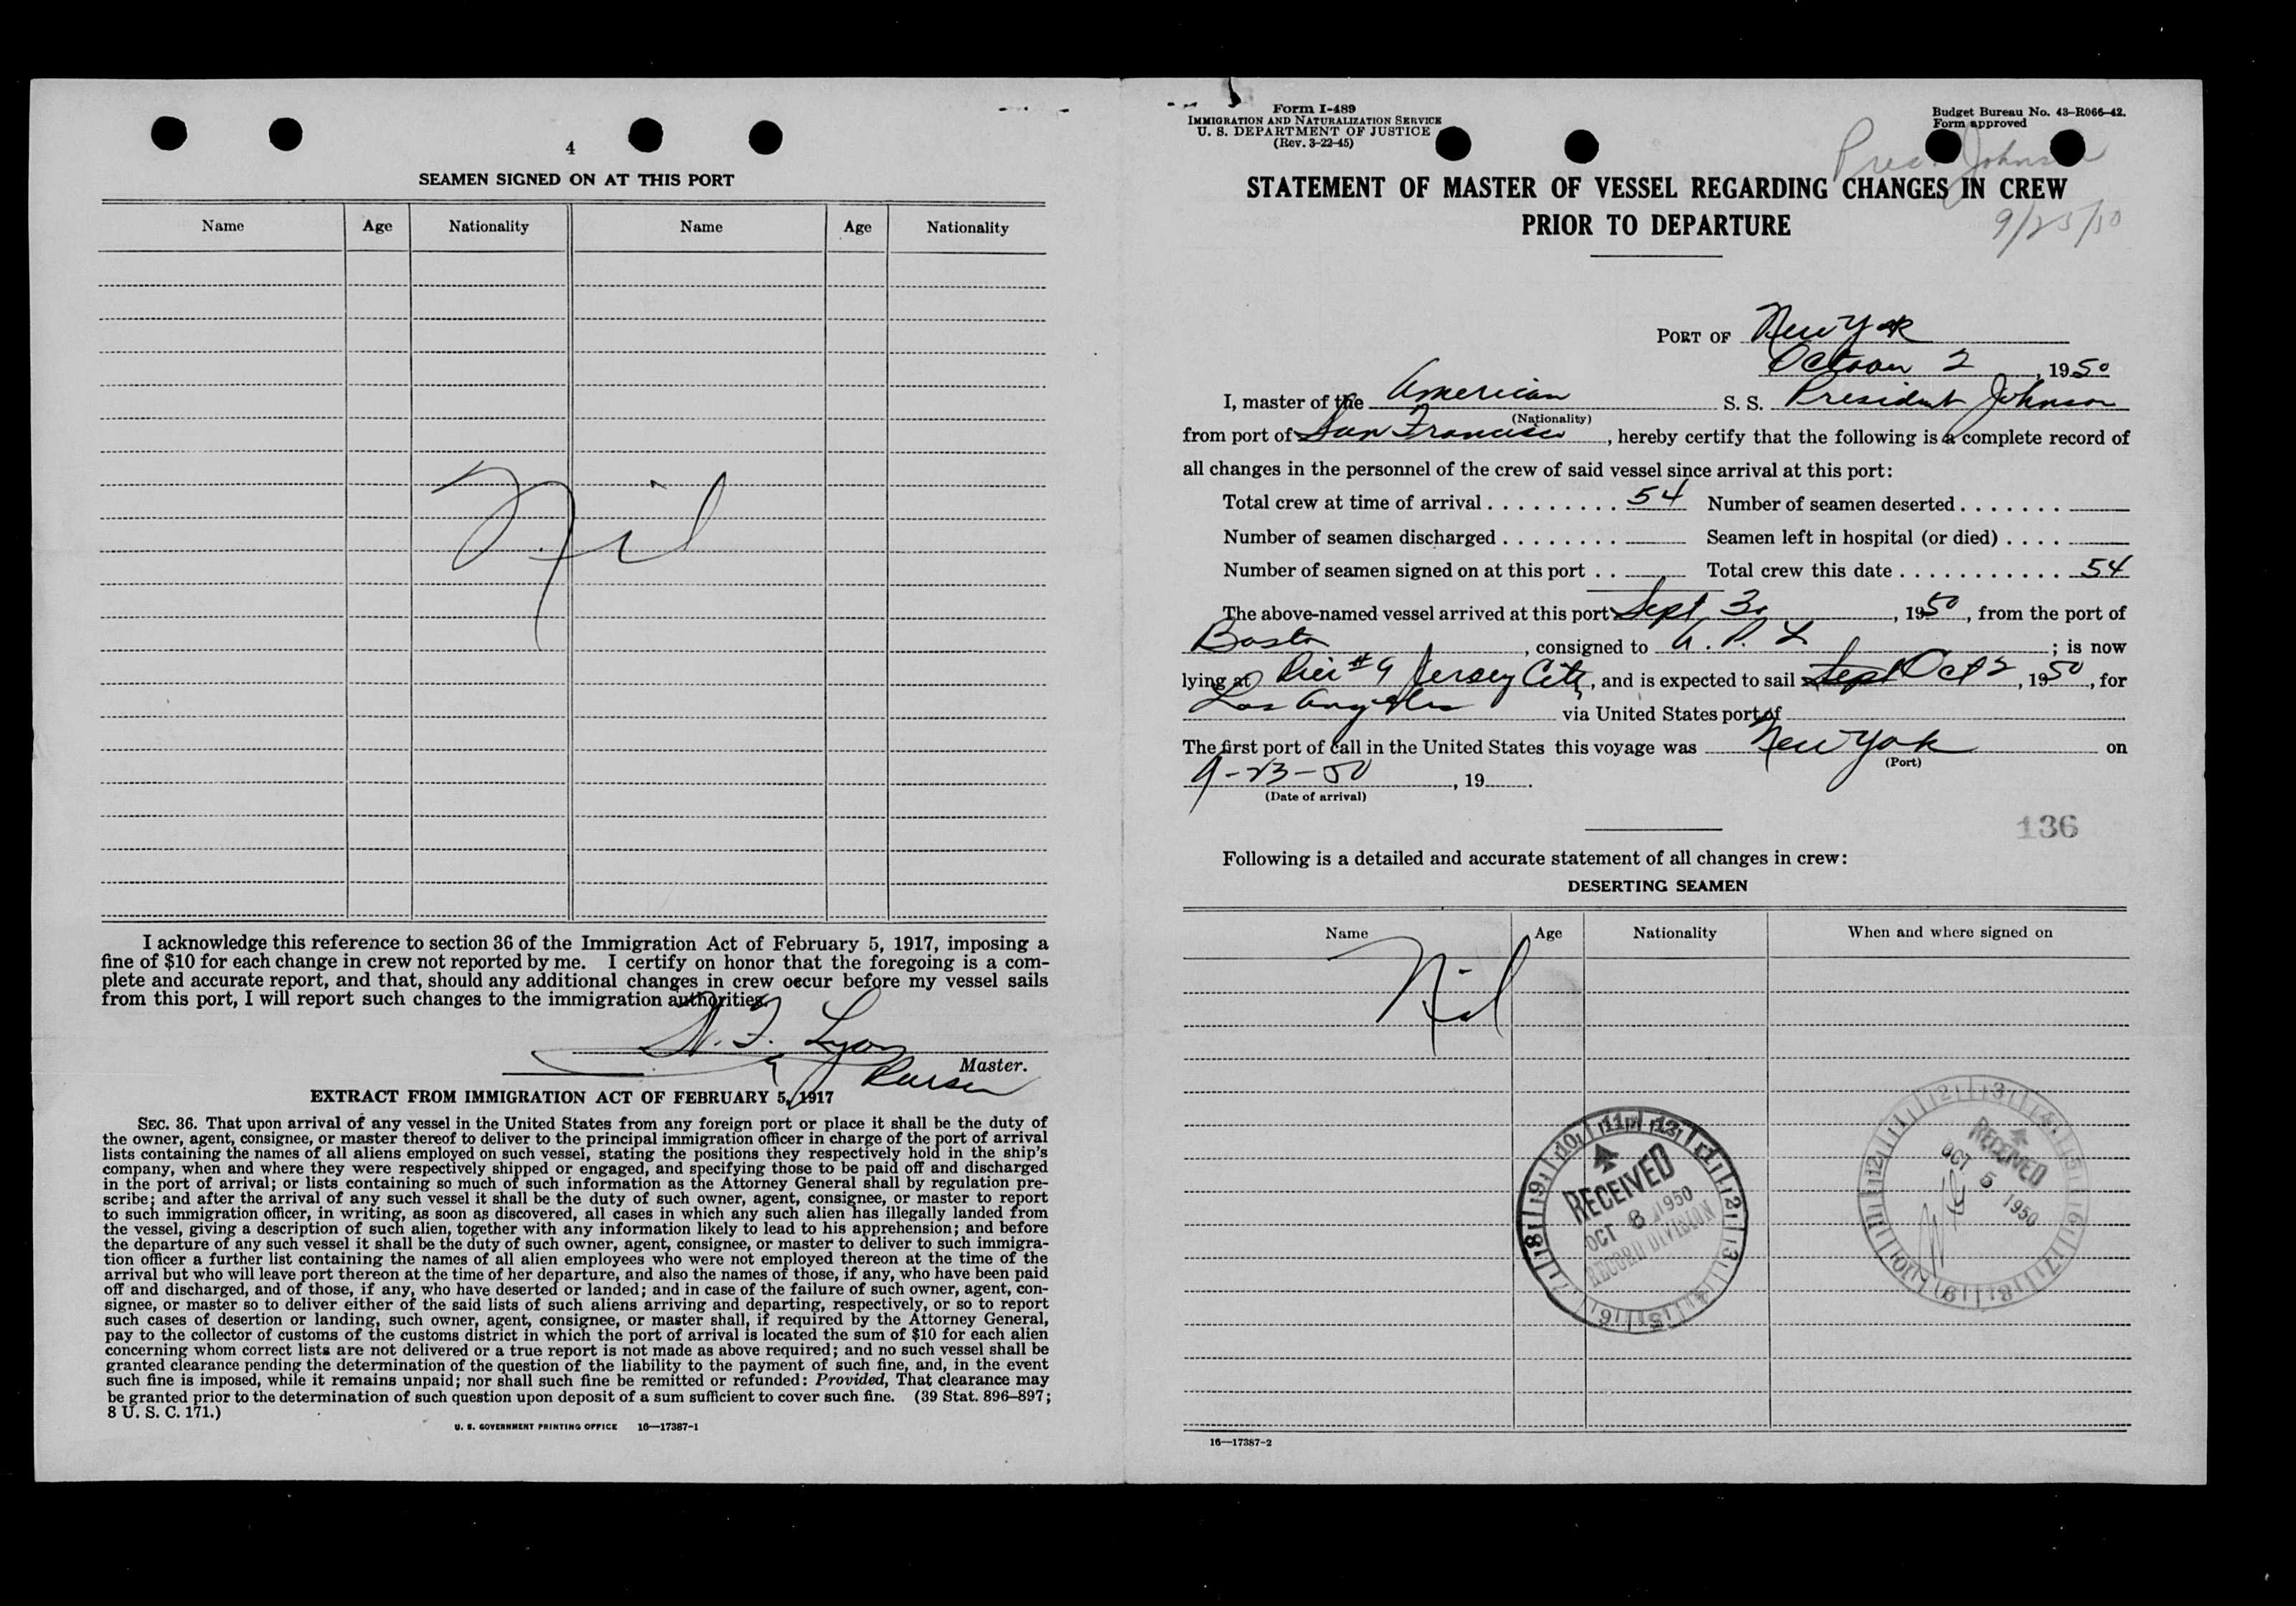 4
SEAMEN SIGNED ON AT THIS PORT
Name Age Nationality Name Age Nationality
Nil
I acknowledge this reference to section 36 of the Immigration Act of February 5, 1917, imposing a
fine of $10 for each change in crew not reported by me. I certify on honor that the foregoing is a com-
plete and accurate report, and that, should any additional changes in crew occur before my vessel sails
from this port, I will report such changes to the immigration authorities.
Lyon
Master.
Purser
EXTRACT FROM IMMIGRATION ACT OF FEBRUARY 5, 1917
SEC. 36. That upon arrival of any vessel in the United States from any foreign port or place it shall be the duty of
the owner, agent, consignee, or master thereof to deliver to the principal immigration officer in charge of the port of arrival
lists containing the names of all aliens employed on such vessel, stating the positions they respectively hold in the ship's
company, when and where they were respectively shipped or engaged, and specifying those to be paid off and discharged
in the port of arrival; or lists containing so much of such information as the Attorney General shall by regulation pre-
scribe; and after the arrival of any such vessel it shall be the duty of such owner, agent, consignee, or master to report
to such immigration officer, in writing, as soon as discovered, all cases in which any such alien has illegally landed from
the vessel, giving a description of such alien, together with any information likely to lead to his apprehension; and before
the departure of any such vessel it shall be the duty of such owner, agent, consignee, or master to deliver to such immigra-
tion officer a further list containing the names of all alien employees who were not employed thereon at the time of the
arrival but who will leave port thereon at the time of her departure, and also the names of those, if any, who have been paid
off and discharged, and of those, if any, who have deserted or landed; and in case of the failure of such owner, agent, con-
signee, or master so to deliver either of the said lists of such aliens arriving and departing, respectively, or so to report
such cases of desertion or landing, such owner, agent, consignee, or master shall, if required by the Attorney General,
pay to the collector of customs of the customs district in which the port of arrival is located the sum of $10 for each alien
concerning whom correct lists are not delivered or a true report is not made as above required; and no such vessel shall be
granted clearance pending the determination of the question of the liability to the payment of such fine, and, in the event
such fine is imposed, while it remains unpaid; nor shall such fine be remitted or refunded: Provided, That clearance may
be granted prior to the determination of such question upon deposit of a sum sufficient to cover such fine. (39 Stat. 896–897;
8 U. S. C. 171.)
U. S. GOVERNMENT PRINTING OFFICE 16—17387-1
Form I-489
IMMIGRATION AND NATURALIZATION SERVICE
U. S. DEPARTMENT OF JUSTICE
(Rev. 3-22-45)
Budget Bureau No. 43–R066–42.
Form approved
Pres. Johnson
9/25/50
STATEMENT OF MASTER OF VESSEL REGARDING CHANGES IN CREW
PRIOR TO DEPARTURE
PORT OF New York
October 2, 1950
I, master of the American S. S. President Johnson
(Nationality)
from port of San Francisco, hereby certify that the following is a complete record of
all changes in the personnel of the crew of said vessel since arrival at this port:
Total crew at time of arrival . . . . . . . . . 54 Number of seamen deserted . . . . . . .
Number of seamen discharged . . . . . . . . Seamen left in hospital (or died) . . . .
Number of seamen signed on at this port . . Total crew this date . . . . . . . . . . . . 54
The above-named vessel arrived at this port Sept 30, 1950, from the port of
Boston, consigned to A. P. L; is now
lying at Pier #9 Jersey City, and is expected to sail Sept Oct 2, 1950, for
Los Angeles via United States port of
The first port of call in the United States this voyage was New York on
(Port)
9-23-50, 19 .
(Date of arrival)
136
Following is a detailed and accurate statement of all changes in crew:
DESERTING SEAMEN
Name Age Nationality When and where signed on
Nil
RECEIVED
OCT 8 1950
RECORD DIVISION
RECEIVED
OCT 5 1950
16—17387-2